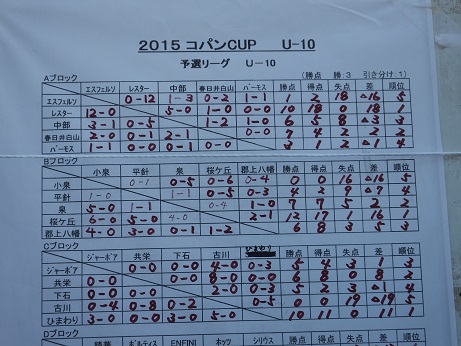 2015 コパンCUP U-10
予選リーグ U-10
(勝点 勝:3 引き分け:1)
Aブロック
エスフェルソ レスター 中部 春日井白山 バーモス 勝点 得点 失点 差 順位
エスフェルソ 0-12 1-3 0-2 1-1 1 2 18 △16 5
レスター 12-0 5-0 1-0 0-0 10 18 0 18 1
中部 3-1 0-5 1-2 1-0 6 5 8 △3 3
春日井白山 2-0 0-1 2-1 0-0 7 4 2 2 2
バーモス 1-1 0-0 0-1 0-0
Bブロック
小泉 平針 泉 桜ケ丘 郡上八幡 勝点 得点 失点 差 順位
小泉 0-1 0-5 0-6 0-4 0 0 16 △16 5
平針 1-0 1-1 0-5 0-3 4 2 9 △7 4
泉 5-0 1-1 0-4 1-0 7 7 5 2 2
桜ケ丘 6-0 5-0 4-0 2-1 12 17 1 16 1
郡上八幡 4-0 3-0 0-1 1-2 6 8 3 5 3
Cブロック
ジャーボア 共栄 下石 古川 ひまわり 勝点 得点 失点 差 順位
ジャーボア 0-0 0-0 4-0 0-3 5 4 3 1 3
共栄 0-0 0-0 8-0 0-0 6 8 0 8 2
下石 0-0 0-0 2-0 0-3 5 2 3 △1 4
古川 0-4 0-8 0-2 0-5 0 0 19 △19 5
ひまわり 3-0 0-0 3-0 5-0 10 11 0 11 1
Dブロック
ボルティス ENFINI ホッツ シリウス 勝点 得点 失点 差 順位